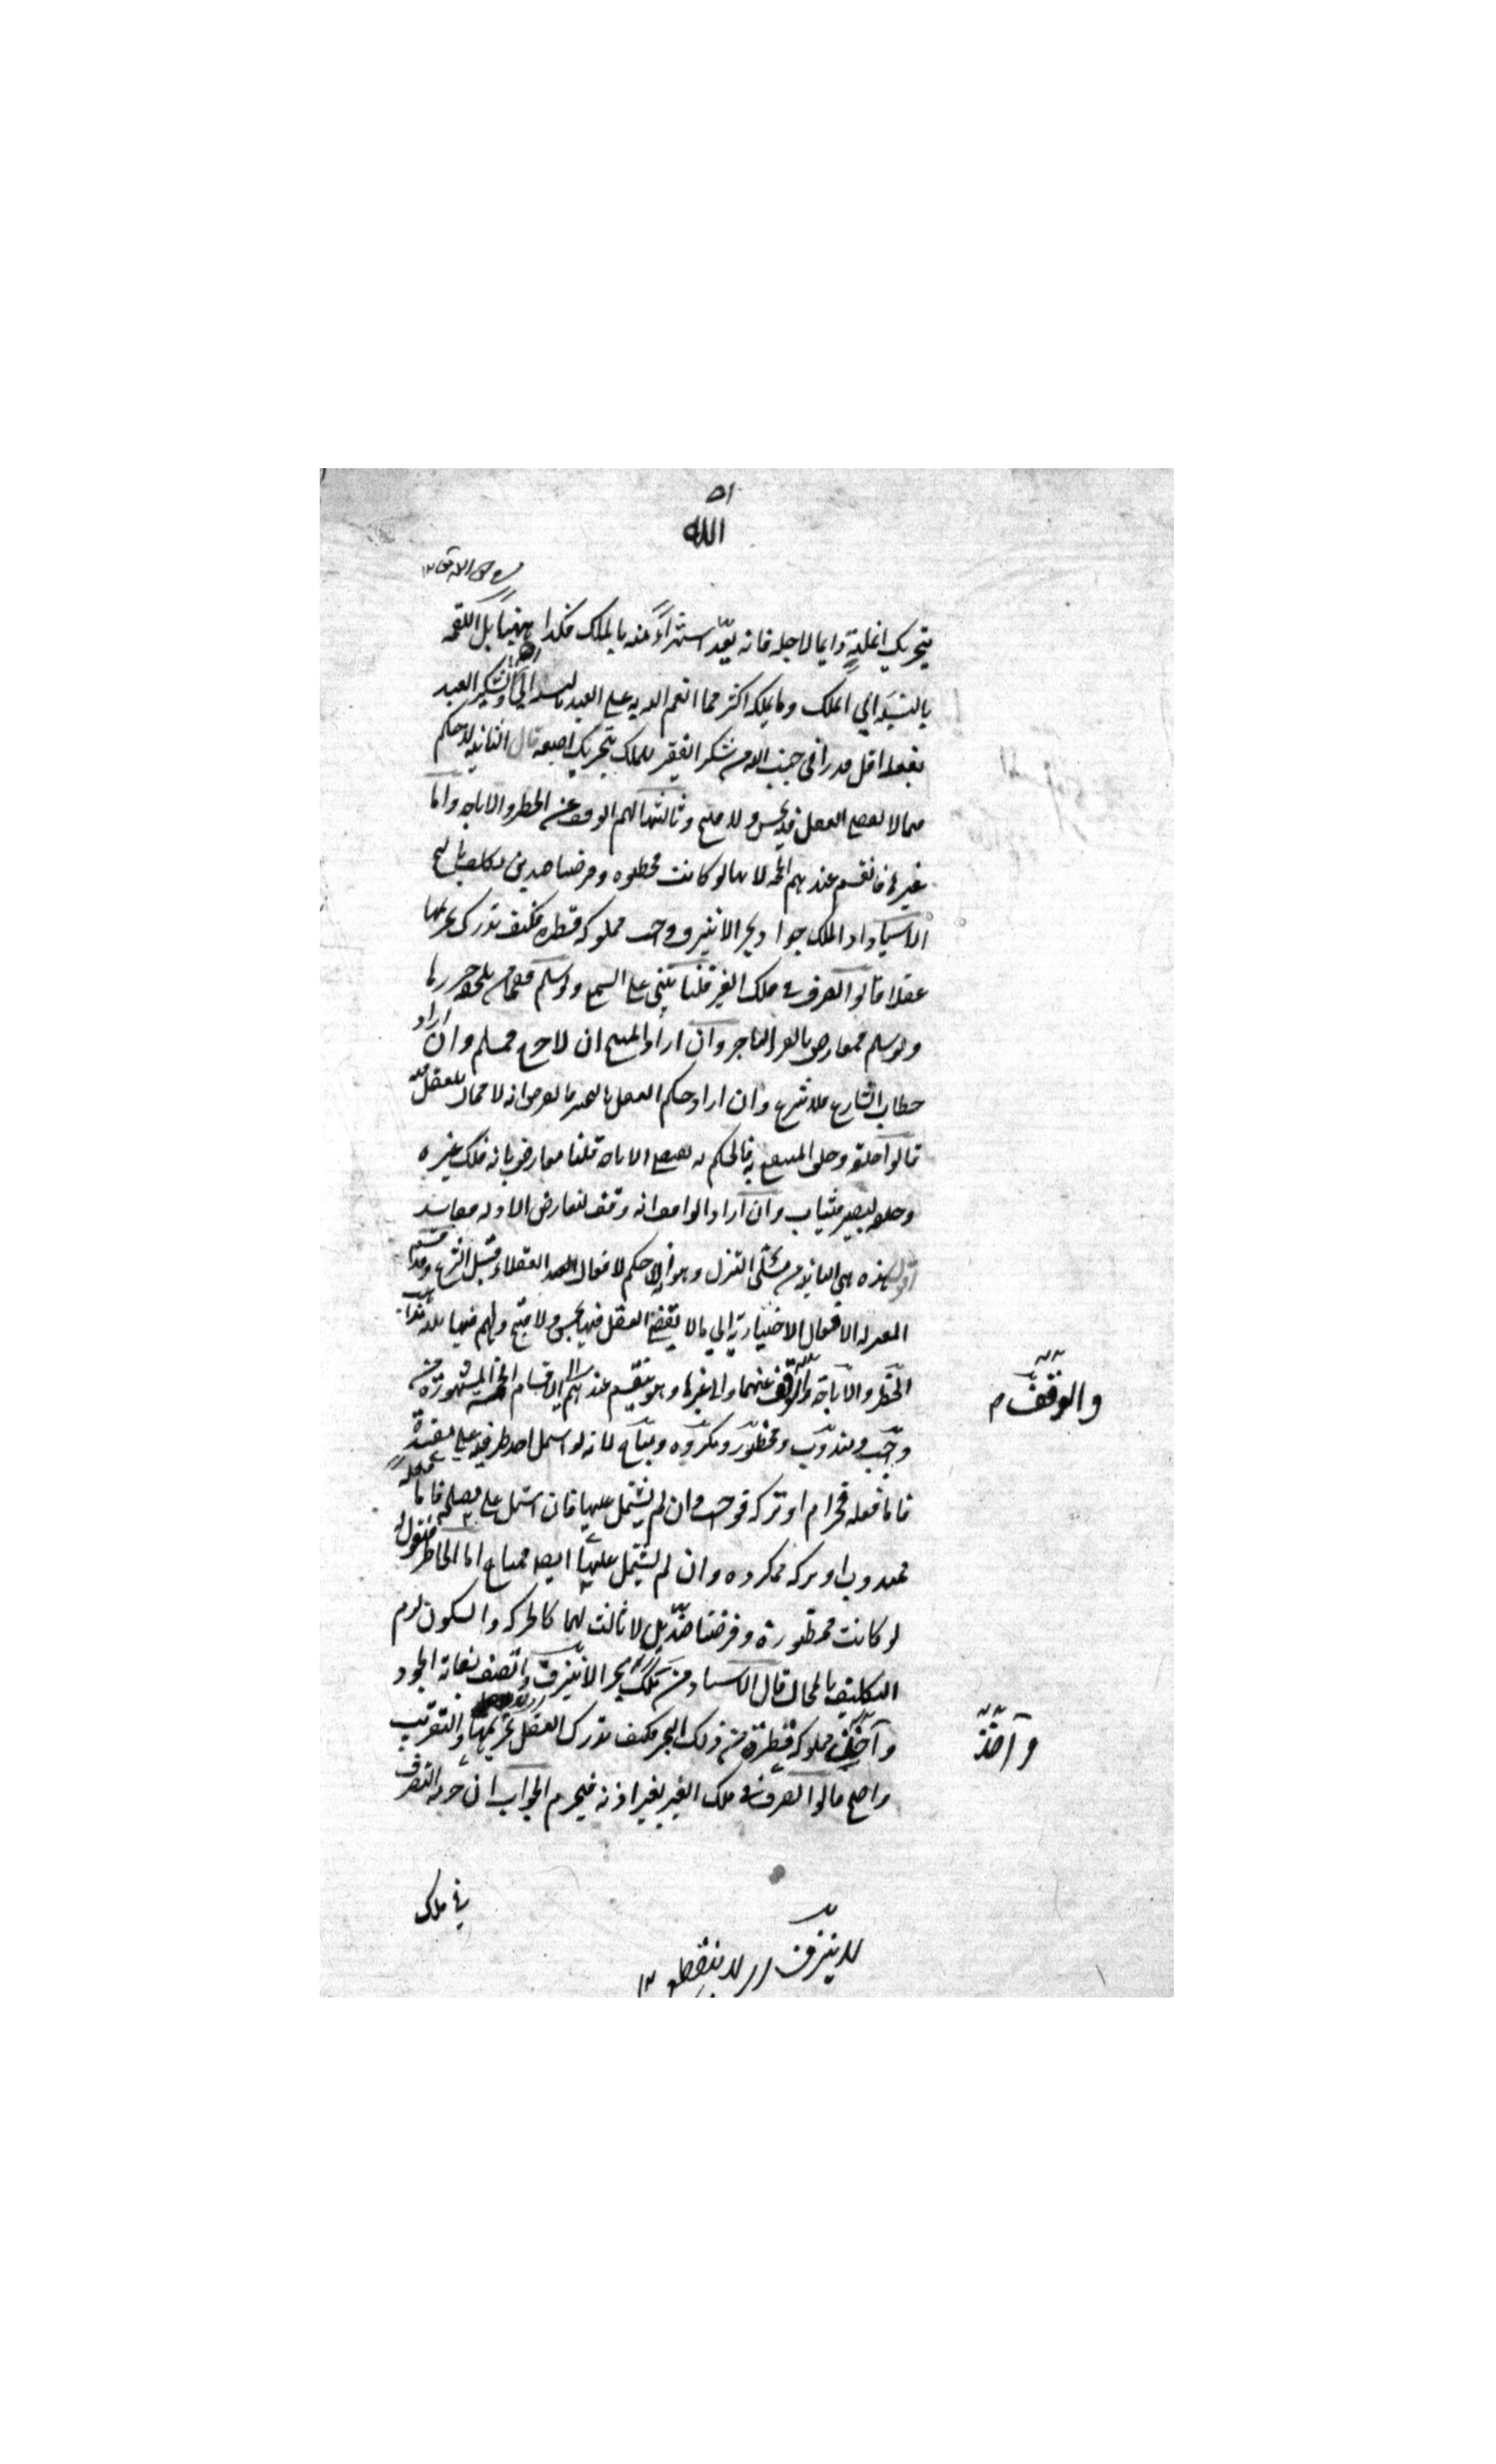 الله
بتحريك انملة دايما لاجله فانه يعد استهزاء منه بالملك فكذا ههنا بل اللقمة
بالنسبة الى الملك وما يملكه اكثر مما انعم الله به على العبد بالنسبة الى الله وشكر العبد
بفعله اقل قدرا في جنب الله من شكر الفقير للملك بتحريك اصبعه قال الثانية لا حكم
فيما لا يقضي العقل فيه بحسن ولا قبح وثالثها لهم الوقف عن الحظر والاباحة واما
غيرها فانقسم عندهم الخمسة لانها لو كانت محظورة وفرضنا ضدين تكليف بالمحال
الاستاذ اذا ملك جواد بحرا لا ينزف واحب مملوكه قطرة فكيف يدرك تحريمها
عقلا قالوا تصرف في ملك الغير قلنا يبتني على السمع ولو سلم ففيمن يلحقه ضرر ما
ولو سلم فمعارض بالضرر الناجز وان اراد المبيح ان لا حرج فمسلم وان اراد
خطاب الشارع فلا شرع وان اراد حكم العقل بالتخيير فالفرض انه لا مجال للعقل فيه
قالوا خلقه وخلق المنتفع به فالحكمة تقتضي الاباحة قلنا معارض بانه ملك غيره
وخلقه ليصبر فيثاب وان اراد الواقف انه وقف لتعارض الادلة ففاسد
اقول هذه هي الثانية من مسئلتي التنزل وهو انه لا حكم لافعال العقلاء قبل الشرع وقد قسم
المعتزلة الافعال الاختيارية الى ما لا يقضي العقل فيها بحسن ولا قبح ولهم فيها ثلثة مذاهب
الحظر والاباحة والوقف عنهما والى غيرها وهو ينقسم عندهم الى الاقسام الخمسة المشهورة من
والوقف م
واجب ومندوب ومحظور ومكروه ومباح لانه لو اشتمل احد طرفيه على مفسدة
فاما فعله فحرام او تركه فواجب وان لم يشتمل عليها فان اشتمل على مصلحة فاما فعله
فمندوب او تركه فمكروه وان لم يشتمل عليها ايضا فمباح اما الحاظر فنقول
لو كانت محظورة وفرضنا ضدين لا ثالث لهما كالحركة والسكون لزم
التكليف بالمحال قال الاستاذ من ملك بحرا لا ينزف واتصف بغاية الجود
واخذ مملوكه قطرة من ذلك البحر فكيف يدرك العقل تحريمها والتقريب
وآخذ
واضح قالوا تصرف في ملك الغير بغير اذنه فيحرم الجواب ان حرمة التصرف
في ملك
لا ينزف لا ينقطع ١٢